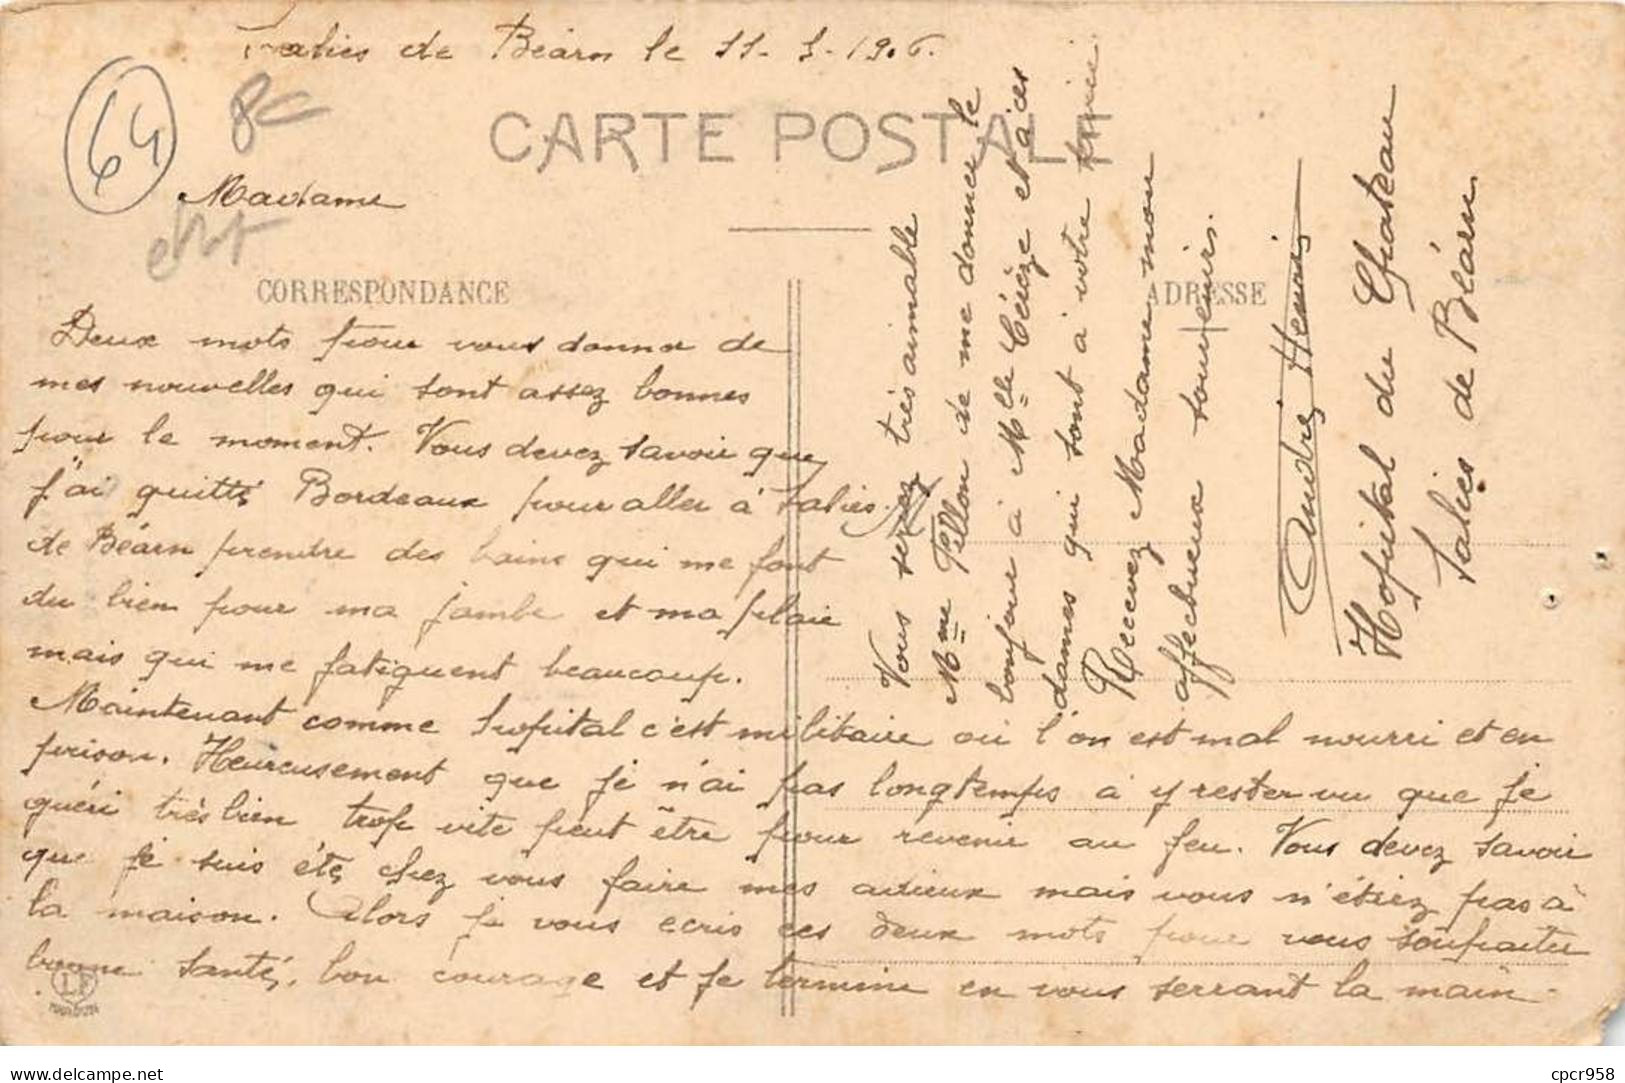 Salies de Béarn le 11-1-1916.
64
8c
CARTE POSTALE
Madame
CORRESPONDANCE
ADRESSE
Deux mots pour vous donner de
mes nouvelles qui sont assez bonnes
pour le moment. Vous devez savoir que
j'ai quitté Bordeaux pour aller à Salies
de Béarn prendre des bains qui me font
du bien pour ma jambe et ma plaie
mais qui me fatiguent beaucoup.
Maintenant comme hopital c'est militaire où l'on est mal nourri et en
prison. Heureusement que je n'ai pas longtemps à y rester vu que je
guéri très bien trop vite peut être pour revenir au feu. Vous devez savoir
que je suis été chez vous faire mes adieux mais vous n'étiez pas à
la maison. Alors je vous ecris ces deux mots pour vous souhaiter
bonne santé, bon courage et je termine en vous serrant la main.
Vous serez très aimable
Mme Pillon de me donner le
bonjour à Mlle Cérèze et à ces
dames qui sont à votre
Recevez Madame mon
affectueux souvenirs.
André Henri
Hopital du Chateau
Salies de Béarn
LF
cpcr958